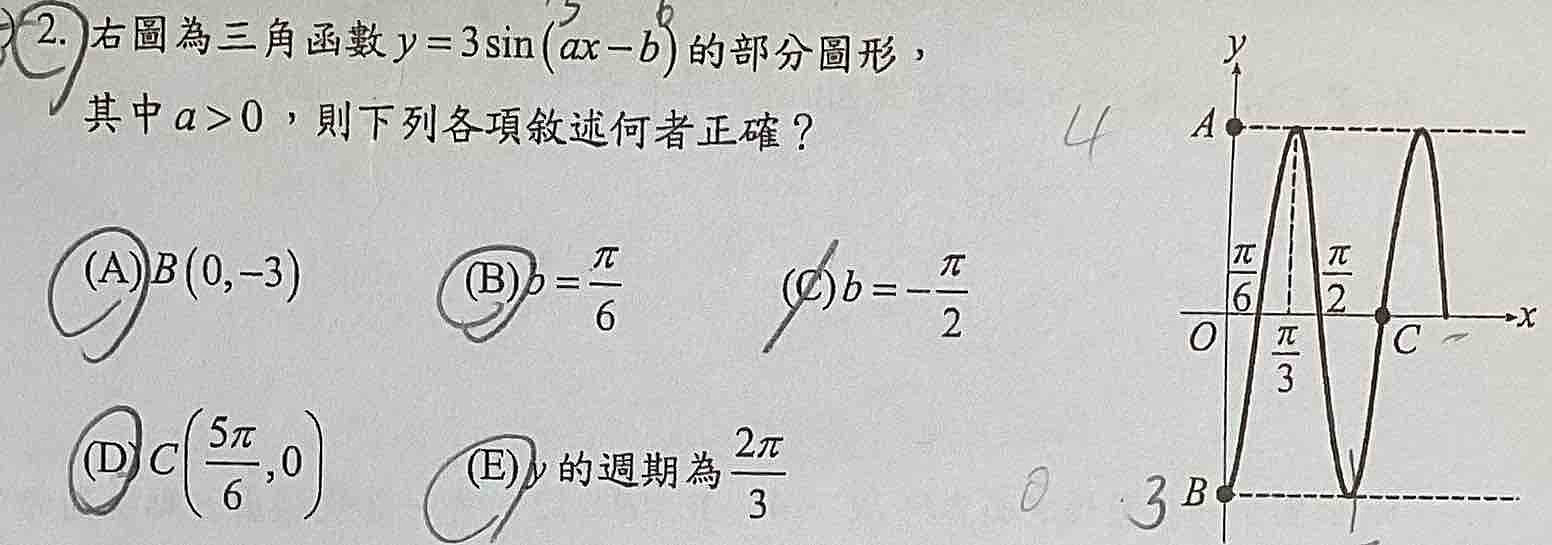 2. 右圖為三角函數 y = 3 sin(ax − b) 的部分圖形，
其中 a > 0，則下列各項敘述何者正確？
(A) B(0, −3) (B) b = π/6 (C) b = −π/2
(D) C(5π/6, 0) (E) y 的週期為 2π/3
y
A
π/6 π/2
O π/3 C x
B
4
0
3